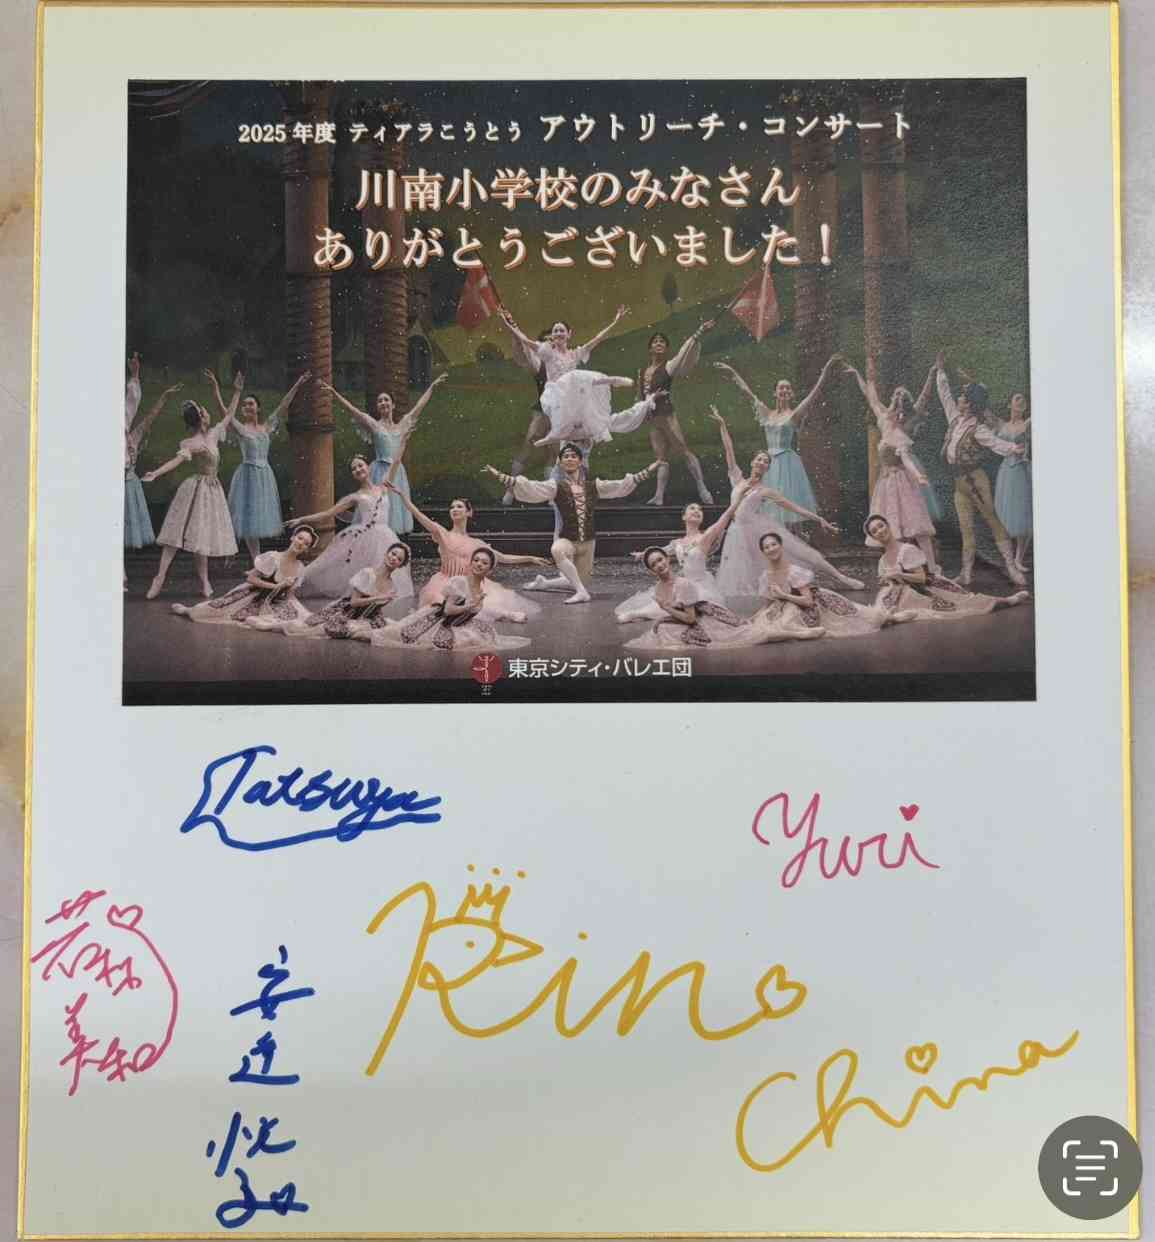 2025年度 ティアラこうとう アウトリーチ・コンサート
川南小学校のみなさん
ありがとうございました！
東京シティ・バレエ団
Tatsuya
Yuri
Rino
China
若林
美和
安達
悦子